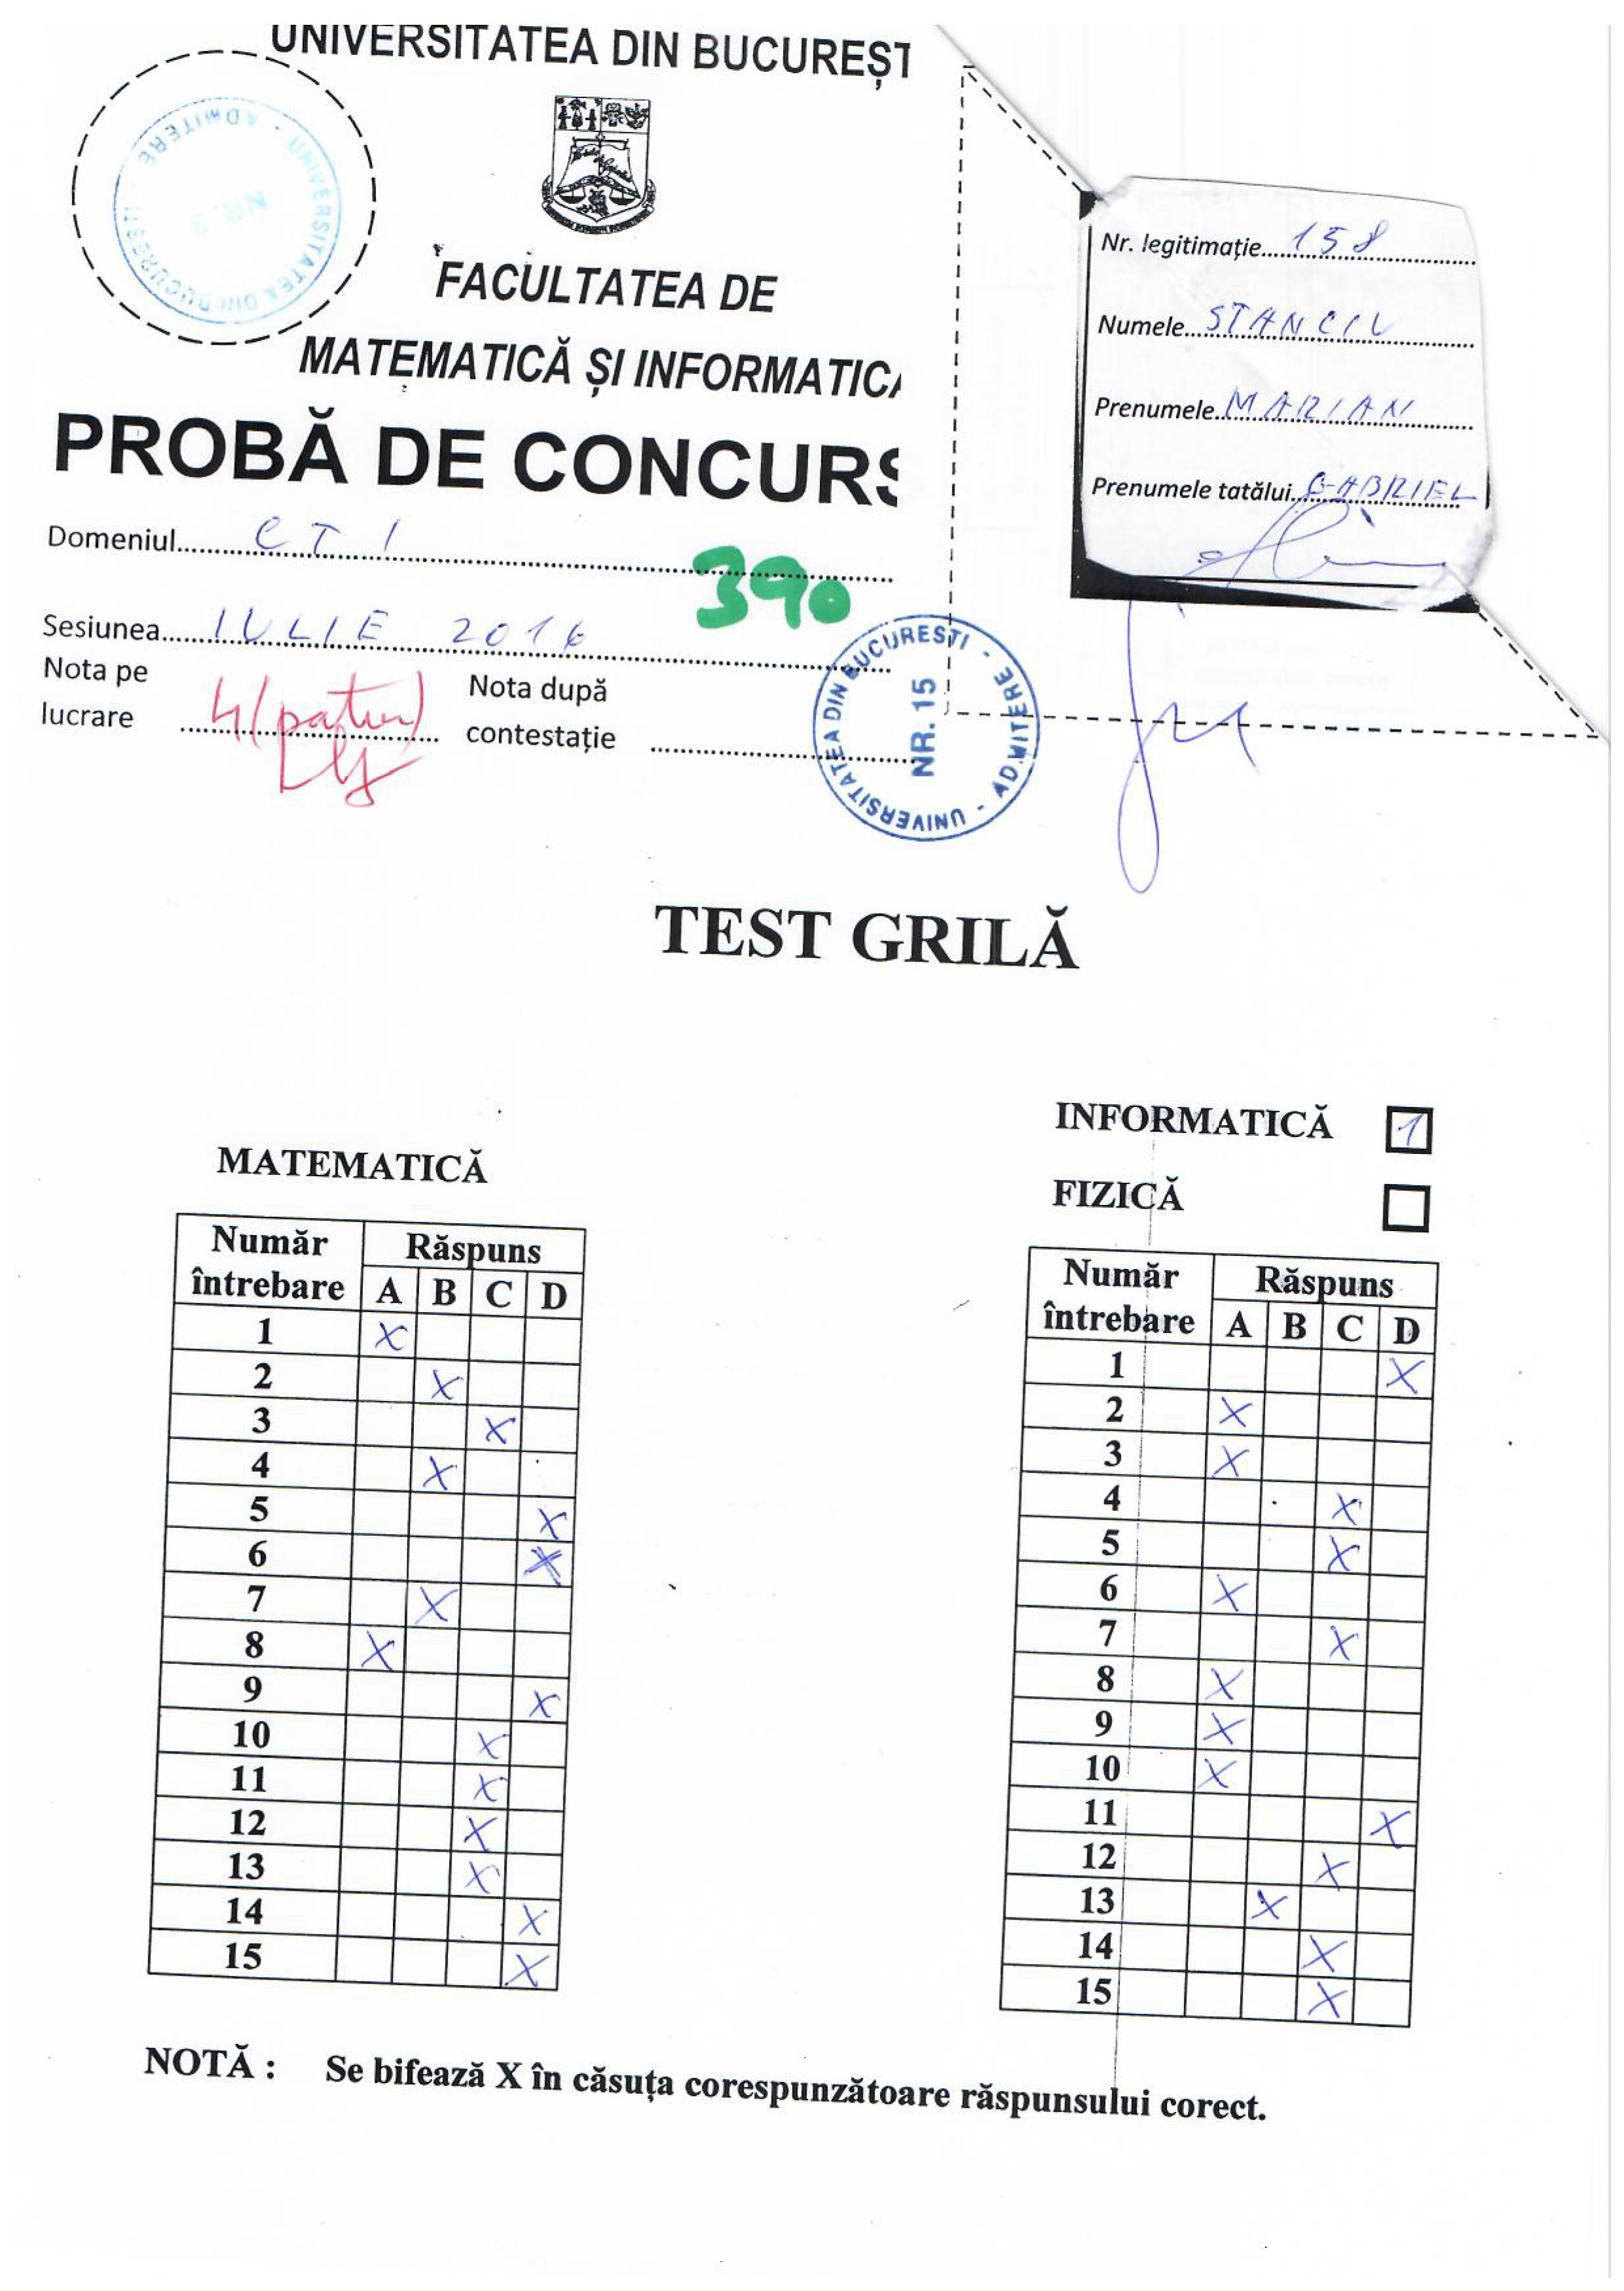 UNIVERSITATEA DIN BUCUREȘT
UNIVERSITATEA DIN BUCURESTI - ADMITERE -
NR. 3
FACULTATEA DE
MATEMATICĂ ȘI INFORMATICA
PROBĂ DE CONCURS
Domeniul CTI
390
Sesiunea IULIE 2016
Nota pe lucrare 4 (patru)
Nota după contestație
UNIVERSITATEA DIN BUCURESTI - ADMITERE -
NR. 15
Nr. legitimație 158
Numele STANCIU
Prenumele MARIAN
Prenumele tatălui GABRIEL
TEST GRILĂ
MATEMATICĂ
Număr întrebare Răspuns
A B C D
1 X
2 X
3 X
4 X
5 X
6 X
7 X
8 X
9 X
10 X
11 X
12 X
13 X
14 X
15 X
INFORMATICĂ 1
FIZICĂ
Număr întrebare Răspuns
A B C D
1 X
2 X
3 X
4 X
5 X
6 X
7 X
8 X
9 X
10 X
11 X
12 X
13 X
14 X
15 X
NOTĂ : Se bifează X în căsuța corespunzătoare răspunsului corect.